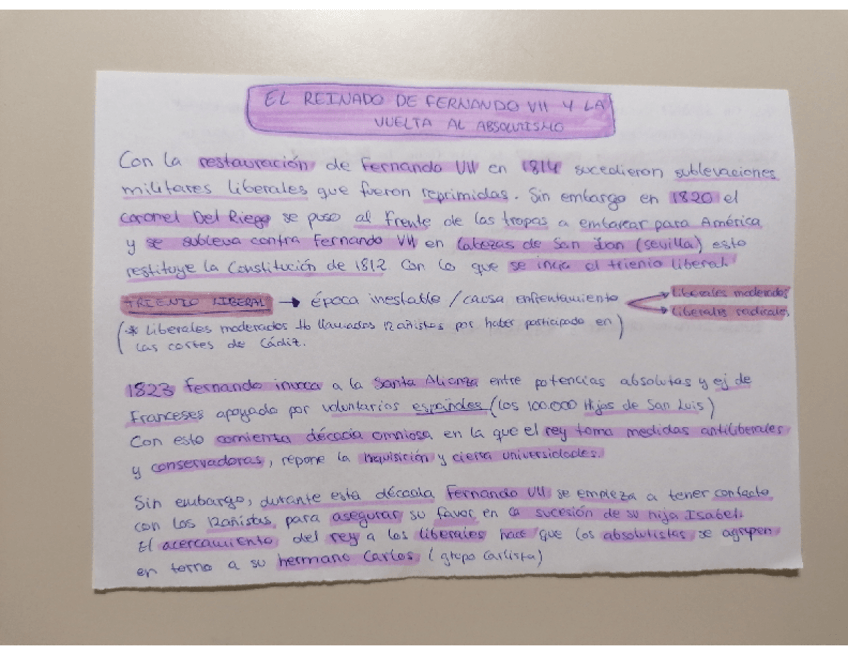 EL REINADO DE FERNANDO VII Y LA
VUELTA AL ABSOLUTISMO
Con la restauración de Fernando VII en 1814 sucedieron sublevaciones
militares liberales que fueron reprimidas. Sin embargo en 1820 el
coronel Del Riego se puso al frente de las tropas a embarcar para América
y se subleva contra Fernando VII en Cabezas de San Joan (Sevilla) esto
restituye la Constitución de 1812 con lo que se incia el trienio liberal.
TRIENIO LIBERAL → época inestable / causa enfrentamiento
Liberales moderados
Liberales radicales
(* Liberales moderados tb llamados 12añistas por haber participado en)
las cortes de Cádiz.
1823 Fernando invoca a la Santa Alianza entre potencias absolutas y ej de
Franceses apoyado por voluntarios españoles (los 100.000 Hijos de San Luis)
Con esto comienza década ominosa en la que el rey toma medidas antiliberales
y conservadoras, repone la inquisición y cierra universidades.
Sin embargo, durante esta década Fernando VII se empieza a tener contacto
con los 12añistas, para asegurar su favor en la sucesión de su hija Isabel.
El acercamiento del rey a los liberales hace que los absolutistas se agrupen
en torno a su hermano Carlos (grupo carlista)